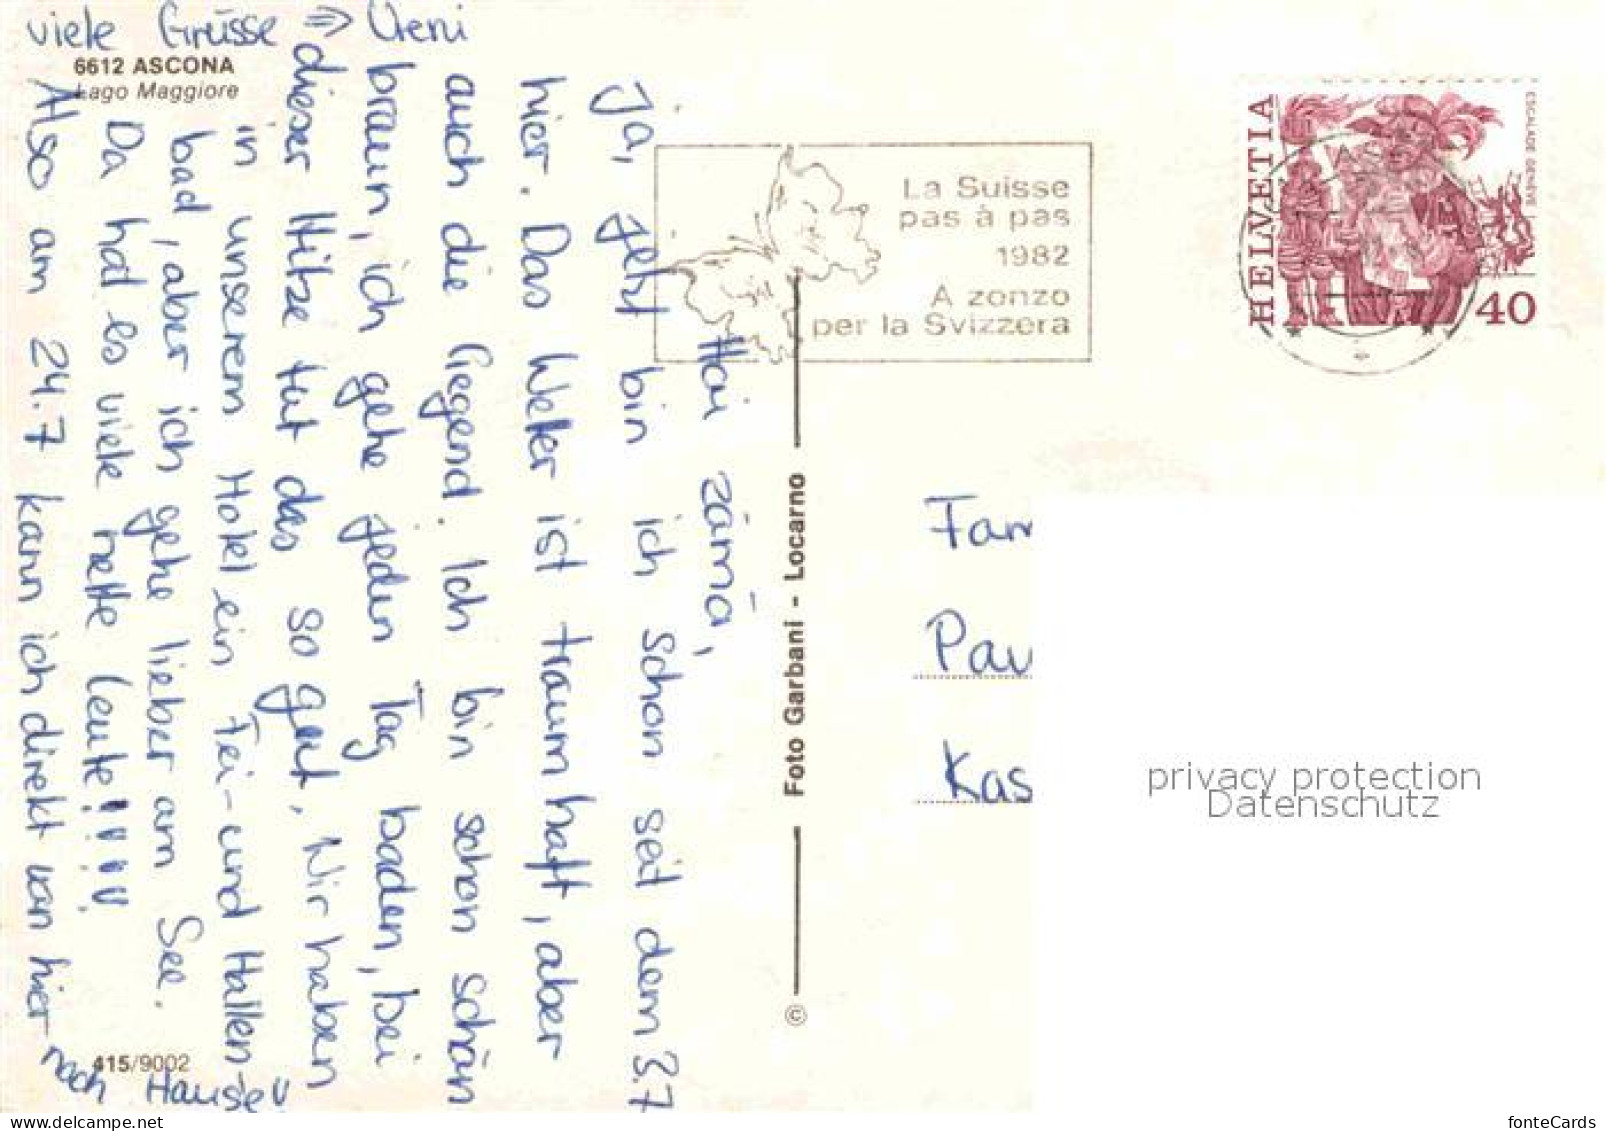 viele Grüsse ⇒ Vreni
6612 ASCONA
Lago Maggiore
Hoi zämä,
Ja, jetzt bin ich schon seit dem 3.7
hier. Das Wetter ist traumhaft, aber
auch die Gegend. Ich bin schon schön
braun, ich gehe jeden Tag baden, bei
dieser Hitze tut das so gut. Wir haben
in unserem Hotel ein Frei- und Hallen-
bad, aber ich gehe lieber am See.
Da hat es viele nette Leute!!!!
Also am 24.7 kann ich direkt von hier
nach Hause!!
415/9002
Foto Garbani - Locarno
©
La Suisse
pas à pas
1982
A zonzo
per la Svizzera
HELVETIA
ESCALADE GENÈVE
40
Fam
Pau
Kas
privacy protection
Datenschutz
fonteCards